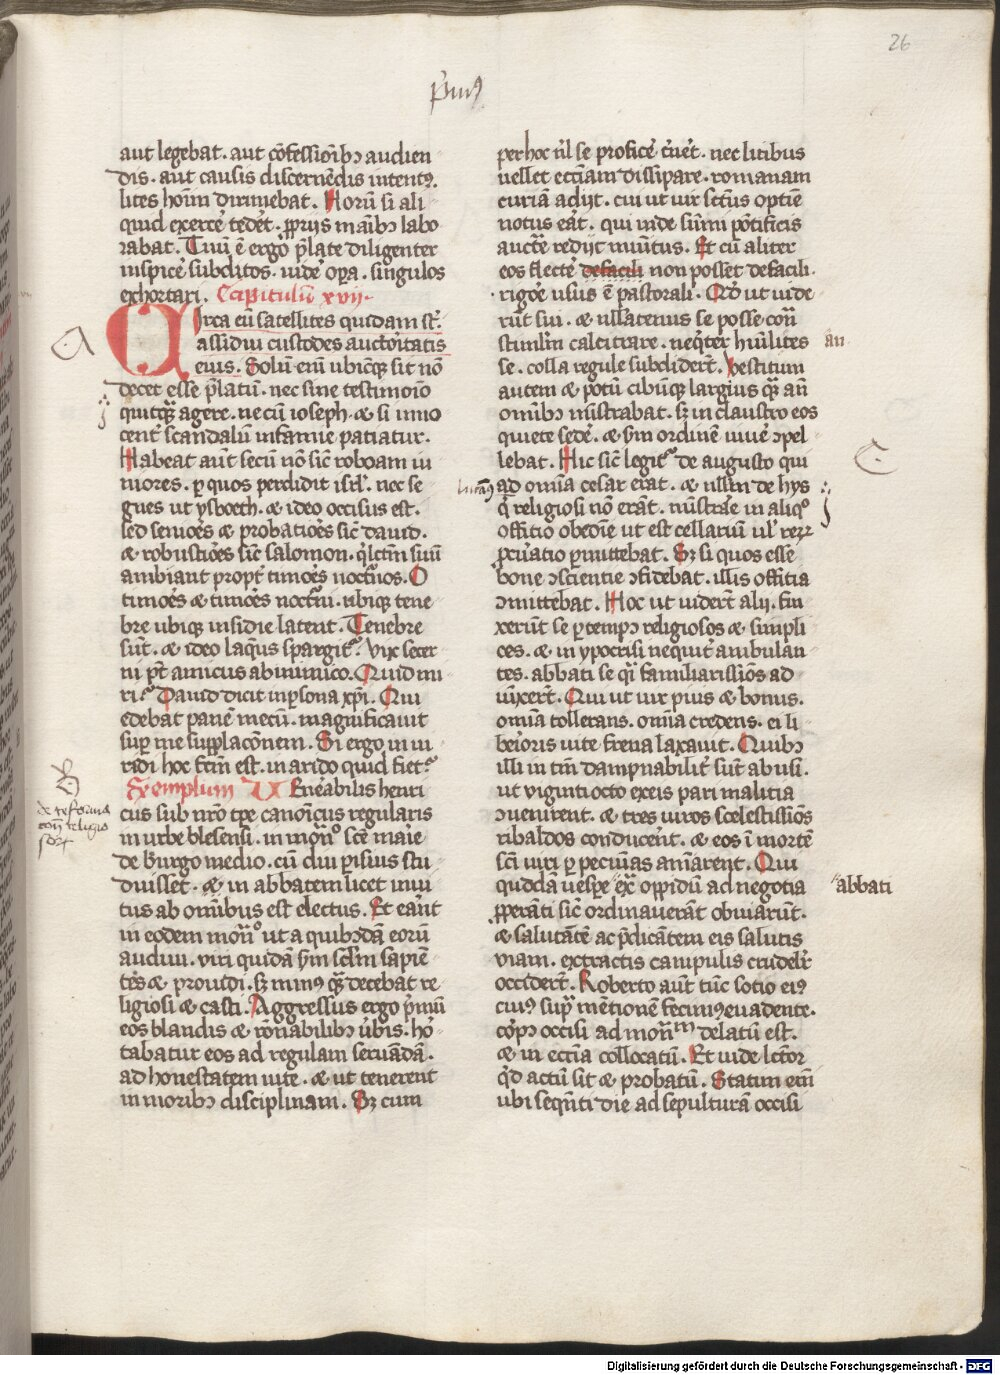 26
p̄mꝯ
aut legebat · aut ꝯfessiōibꝫ audien
dis · aut causis discernēdis intentꝰ ·
lites hoīm dirimebat · Horū si ali
quid exercē̄ tedet̄ · ꝓprijs māibꝫ labo
rabat · Tuū ē ergo p̄late diligenter
inspicē̄ subditos · uidē̄ oꝑa · singulos
exhortari · Capitulū xvij ·
Circa eū satellites quidam st̄ ·
assidiu custodes auctoritatis
eius · Solum eīn ubicūqꝫ sit nō
decet esse p̄latū · nec sine testimoīo
quicqꝫ agere · ne cū ioseph · & si inno
cent̄ scandalū infamie patiatur ·
Habeat aūt secū nō sic̄ roboam iu
niores · ꝑ quos perdidit isrl̄ · nec se
gnes ut ysboeth · & ideo occisus est ·
sed senioē̄s & probatioē̄s sic̄ dauid ·
& robustioē̄s sic̄ salomon · q̄ lc̄tm̄ suū
ambiant propt̄ timoē̄s noct̄nos · O
timoē̄s & timoē̄s noct̄ni · ubiqꝫ tene
bre ubiqꝫ insidie latent · Tenebre
sūt · & ideo laqꝰs spargit᷑ · Vix secer
ni pt̄ amicus ab inimico · Quid mi
ri · Dauid dicit in ꝑsona xp̄i · Qui
edebat panē̄ mecū · magnificauit
suꝑ me supplacōnem · Si ergo in ui
ridi hoc fc̄m est · in arido quid fiet ·
Exemplum Venēabilis henri
cus sub nr̄o tpe canōicus regularis
in urbe blesensi · in mōn̄° sc̄e maīe
de burgo medio · cū diu ꝑisius stu
duisset · & in abbatem licet inui
tus ab oīnibus est electus · Et eānt
in eodem mōn̄° ut a quibꝰdā eorū
audiui · viri quidā sm̄ sc̄lm sapiē
tes & prouidi · sꝫ minꝰ qꝫ decebat re
ligiosi & casti · Aggressus ergo p̄mū
eos blandis & rōnabilibꝫ ūbis · ho
tabatur eos ad regulam seruādā ·
ad honestatem uite · & ut tenerent
in moribꝫ disciplinam · Sꝫ cum
A
B
de reforma
con̄ religio
soꝝ
per hoc nl̄ se proficē̄ c̄nēt · nec litibus
uellet eccīam dissipare · romanam
curiā adijt · cui ut uir sc̄tus optie
notus eāt · qui inde sūmi pōtificis
auctē redijt muītus · Et cū aliter
eos flectē̄ defacili non posset defacili ·
rigoē̄ usus ē pastorali · Qd ut uide
rūt sui · & ullatenus se posse con̄
stimlm̄ calcitrare · neqꝫter hūilites
se · colla regule subdiderūt · Vestitum
autem & potū cibūqꝫ largius qꝫ an̄
oīnibꝫ mīstrabat · sꝫ in claustro eos
quiete sedē̄ · & sm̄ ordinē uiuē̄ ꝯpel
lebat · Hic sic̄ legit᷑ de augusto qui
ad omīa cesar erat · & ullm̄ de hys
q̄ religiosi nō erāt · mīstrare in aliqͦ
officio obedīe ut est cellariū ul' reꝝ
ꝓcuratio ꝑmittebat · Sꝫ si quos essē̄
bone ꝯscientie ꝯfidebat · illis officia
ꝯmittebat · Hoc ut uiderūt alij · fin
xerūt se ꝑ tempꝰ religiosos & simpli
ces · & in ypocrisi nequit̄ ambulan
tes · abbati se qi̅ familiarissīos ad
iūxert̄ · Qui ut uir pius & bonus ·
omīa tollerans · omīa credens · ei li
beīoris uite frena laxauit · Quibꝫ
illi in tm̄ dampnabilit̄ sūt abusi ·
ut viginti octo ex eis pari malitia
ꝯuenirent · & tres uiros scelestissīos
ribaldos conducent̄ · & eos ī mortē
sc̄i uiri ꝑ pecunias aīmarent · Qui
quādā uespe ex̄ oppidū ad negotia
ꝓperāti sic̄ ordinauerāt obuiarūt ·
& salutātē ac p̄dicātem eis salutis
viam · extractis campulis crudelit̄
occidert̄ · Roberto aūt tūc sotio eiꝰ
cuiꝰ supͣ mētionē fecimꝰ euadente ·
corpꝰ occisi ad mōn̄m delatū est ·
& in ecc̄ia collocatū · Et uide lc̄tor
qd̄ actū sit & probatū · Statim eīn
ubi seqūti die ad sepulturā occisi
an
C
abbati
Digitalisierung gefördert durch die Deutsche Forschungsgemeinschaft - DFG